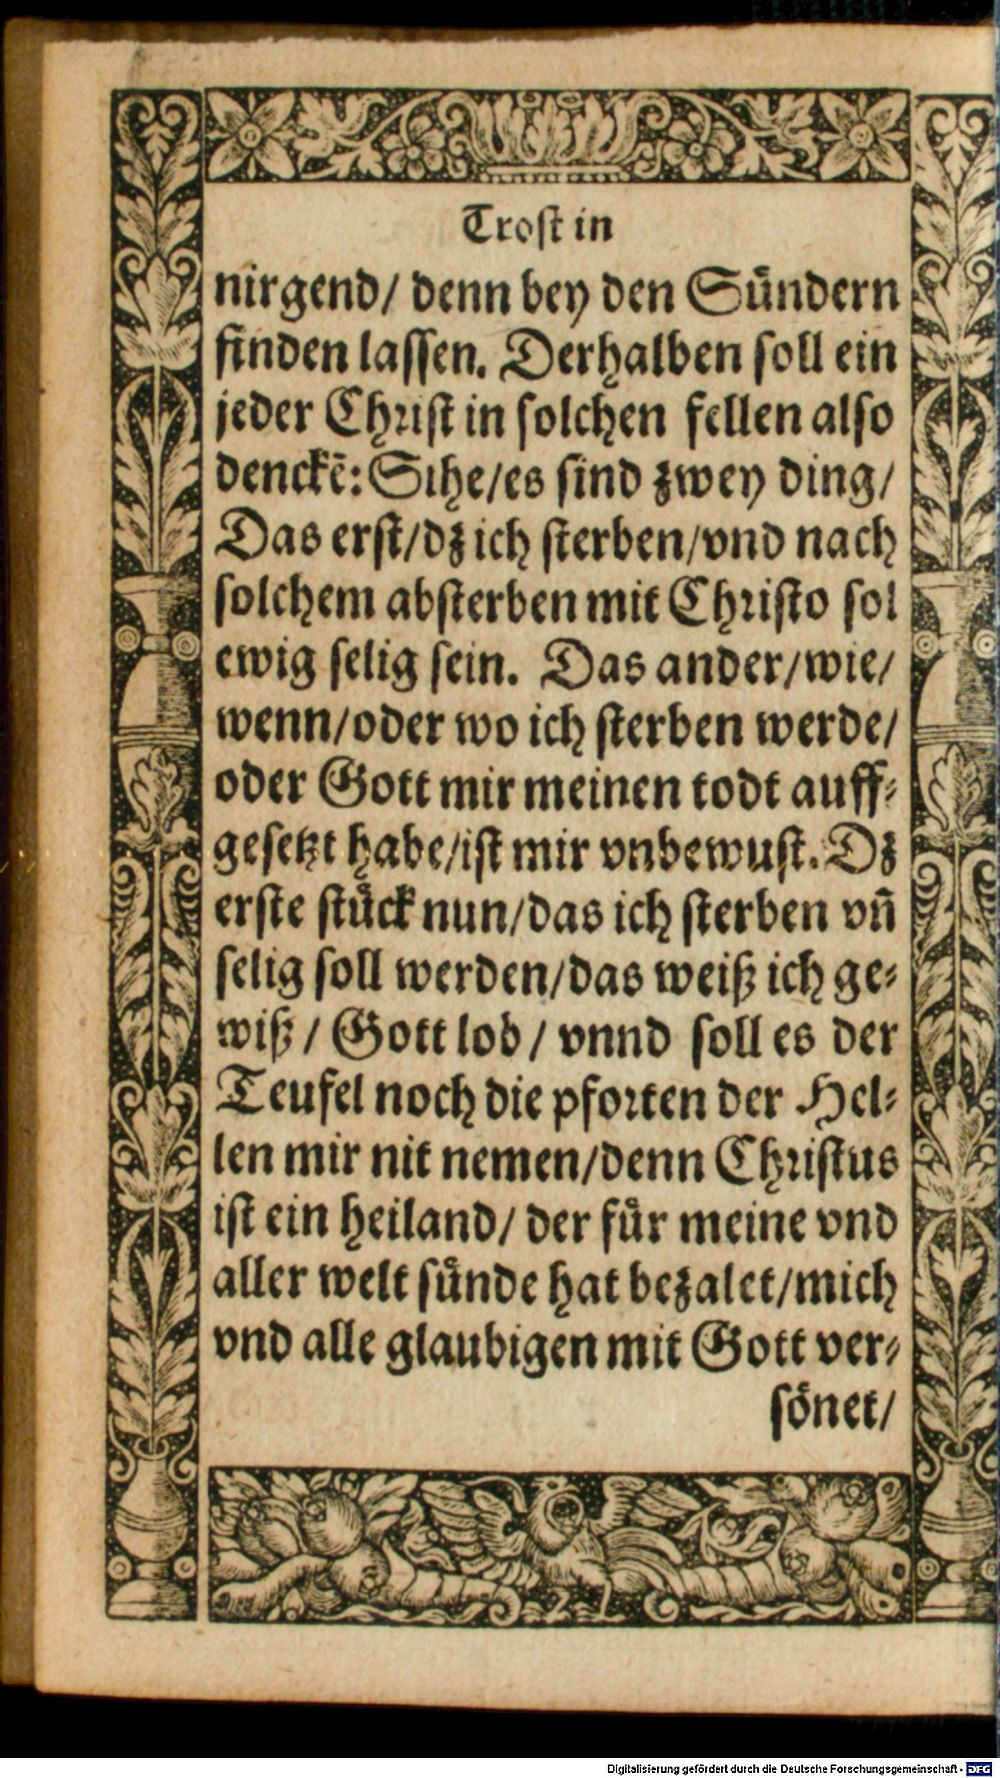 Troſt in
nirgend/ denn bey den Suͤndern
finden laſſen. Derhalben ſoll ein
jeder Chꝛiſt in ſolchen fellen alſo
denckē: Sihe/es ſind zwey ding/
Das erſt/dz ich ſterben/vnd nach
ſolchem abſterben mit Chꝛiſto ſol
ewig ſelig ſein. Das ander/wie/
wenn/oder wo ich ſterben werde/
oder Gott mir meinen todt auff⸗
geſetzt habe/iſt mir vnbewuſt. Dz
erſte ſtuͤck nun/das ich ſterben vn̄
ſelig ſoll werden/das weiß ich ge⸗
wiß / Gott lob / vnnd ſoll es der
Teufel noch die pfoꝛten der Hel⸗
len mir nit nemen/denn Chꝛiſtus
iſt ein heiland/ der fuͤr meine vnd
aller welt ſuͤnde hat bezalet/mich
vnd alle glaubigen mit Gott ver⸗
ſoͤnet/
Digitalisierung gefördert durch die Deutsche Forschungsgemeinschaft - DFG